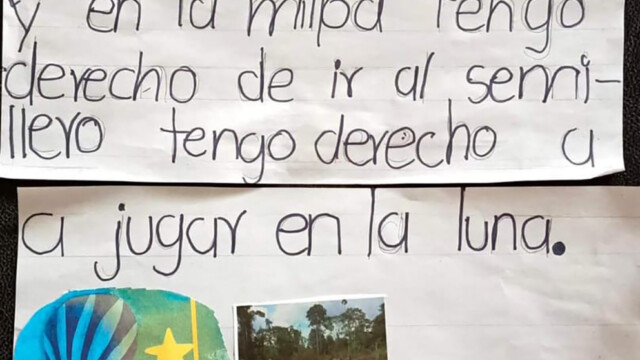 y en la milpa tengo
derecho de ir al semi-
llero tengo derecho a
a jugar en la luna.